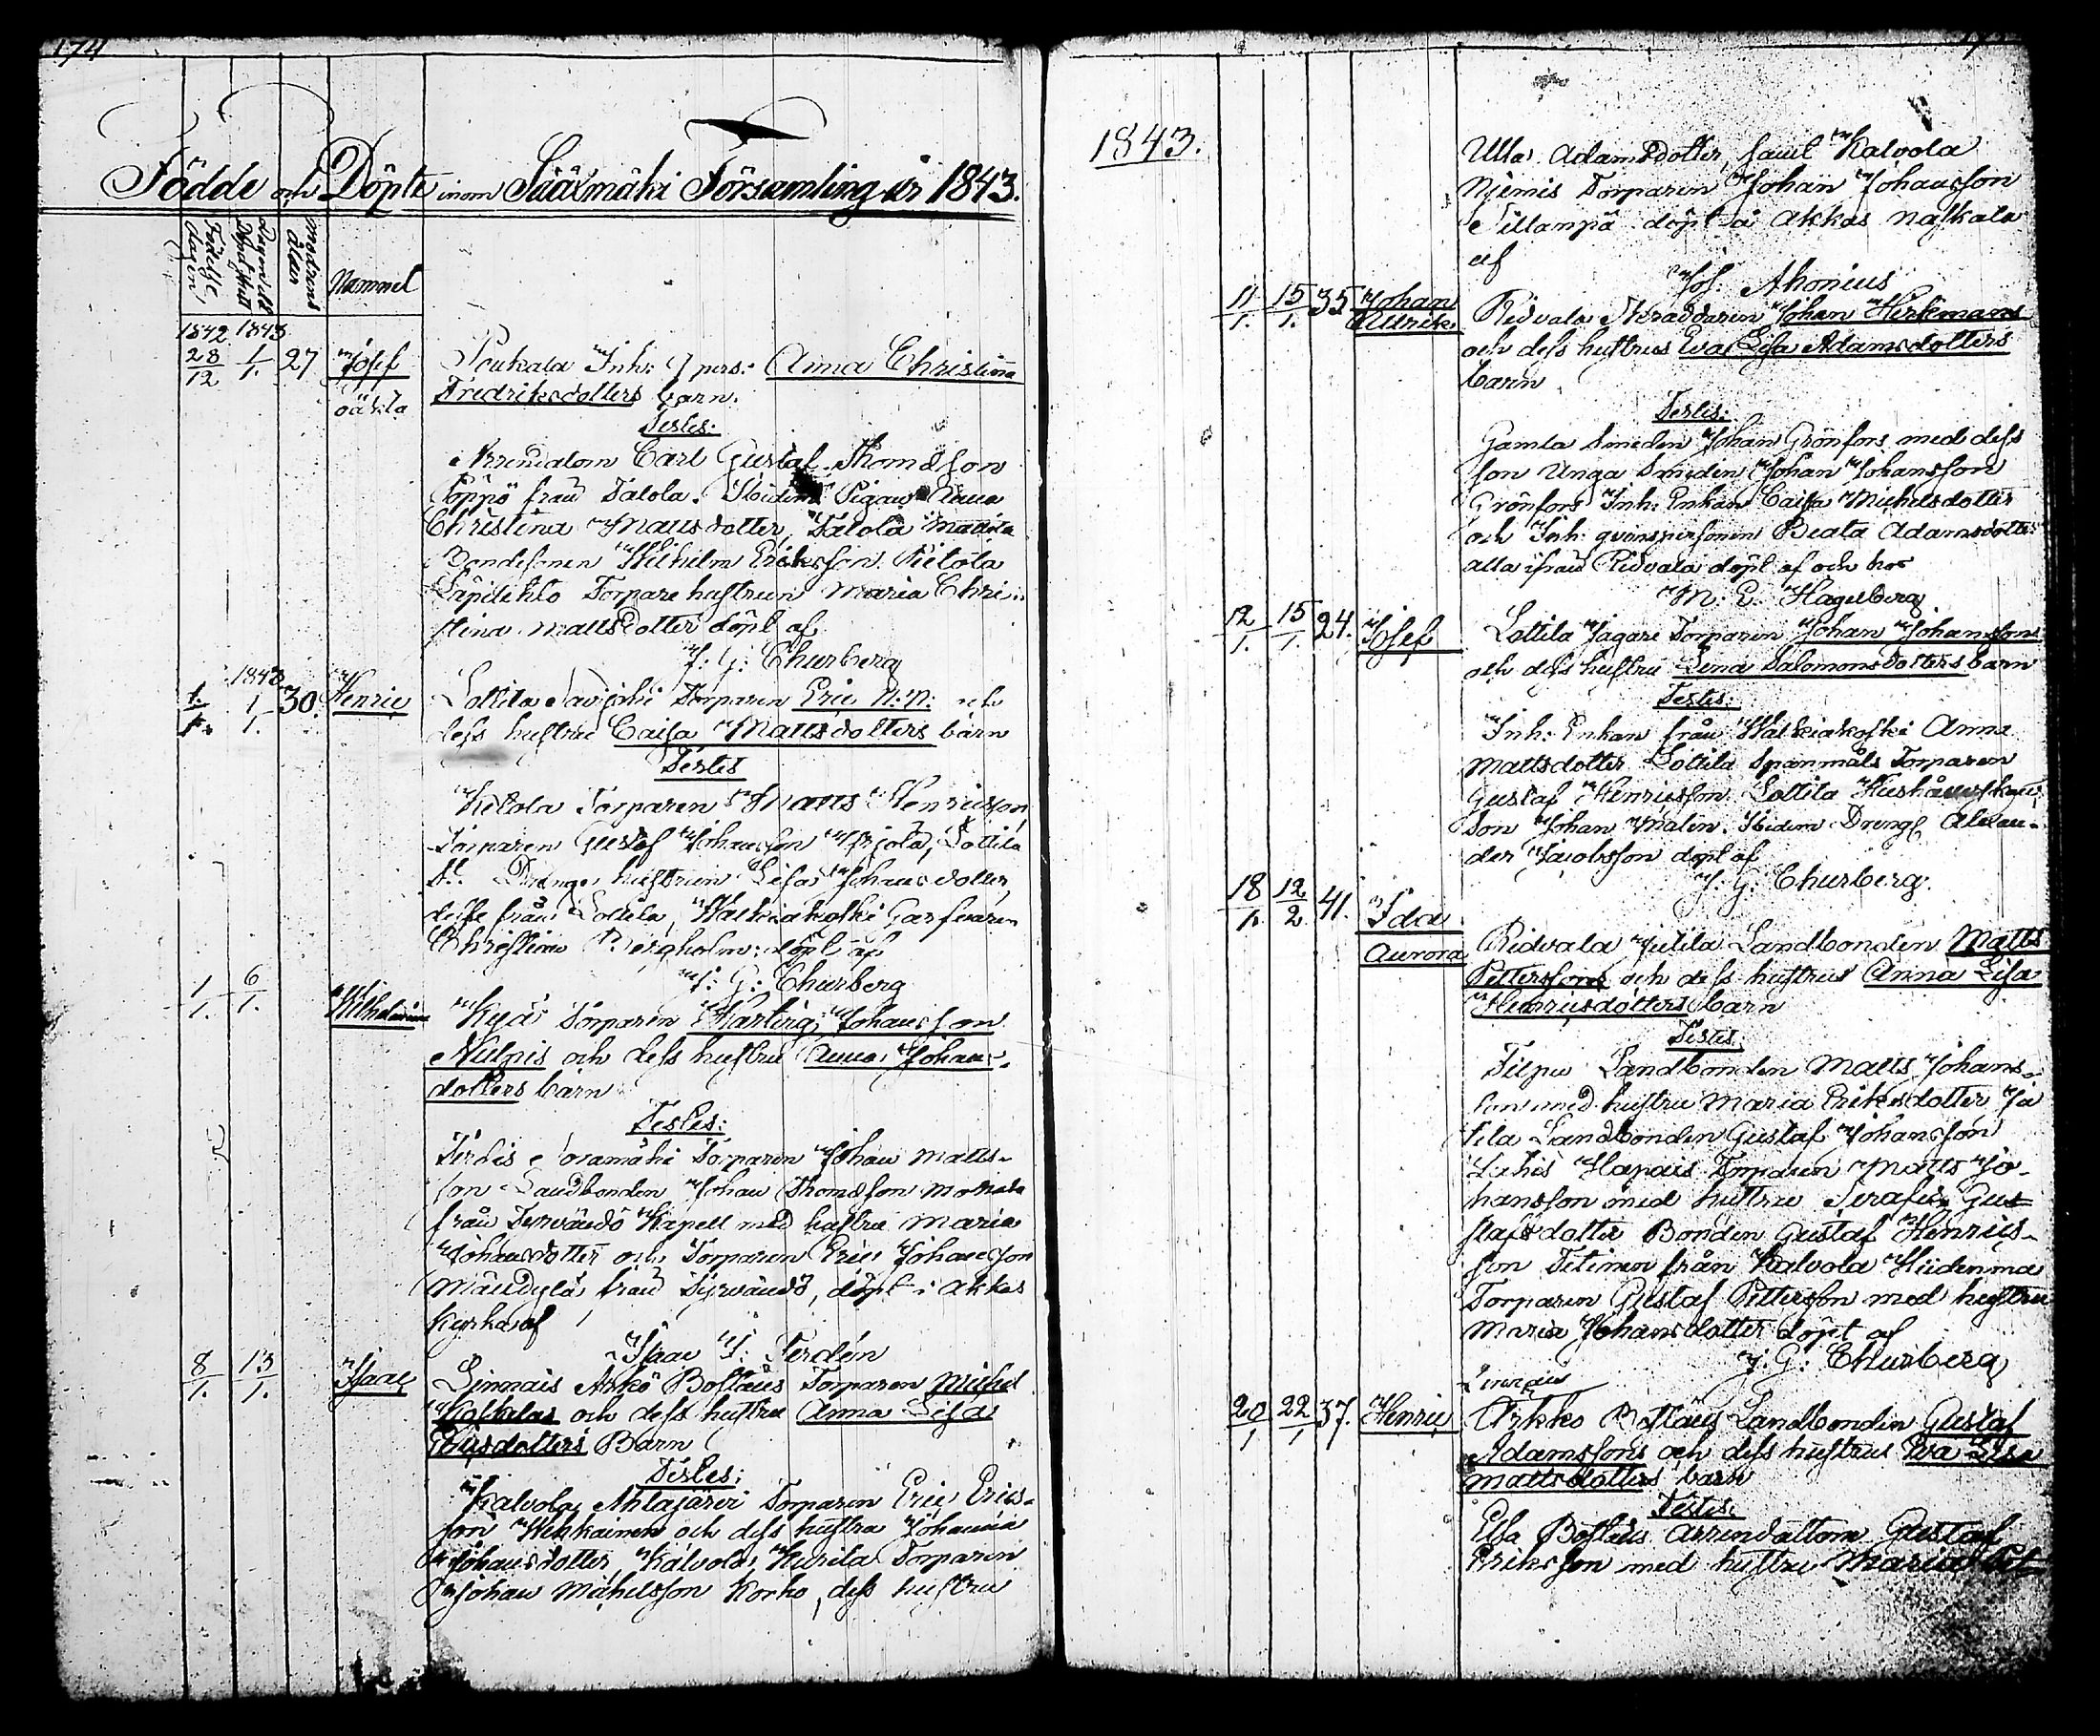 174
Födde och Döpte inom Sääxmäki Församling år 1843.
Födelse dagen
Dagen då Döpelse
Modrens Ålder
Nammel
1842 1843
28/12 1/1. 27 Josef oäkta
Inh: q pers: Anna Christina
Fredriksdotters barn.
Testes:
Arrendatorn Carl Gustaf Thomasson
från Talola. Ibidem Pigan Anna
Christina Mattsdotter, Talola
Bondesonen Wilhelm Eriksson. Rietola
Torpare hustrun Maria Chri-
stina Mattsdotter döpt af
J: G: Churberg
1843
1/1. 1/1. 30. Henric
Lottila Torparen Eric N:N: och
dess hustru Caisa Mattsdotters barn
Testes
Ketola Torparen Matts Henricsson
Torparen Gustaf Johansson Lottila
Drengs hustrun Lisa Johansdotter
desse från Lottila, Walkiakoski Garfvaren
Christian Bergholm: döpt af
J: G: Churberg
1/1. 6/1. Wilhelmina
Torparen Johansson
och dess hustru Anna Johans-
dotters barn
Testes:
Torparen Johan Matts-
son Landbonden Johan Thomasson
från Tyrvändö Kapell med hustru Maria
Johansdotter och Torparen Eric Johansson
från Tyrvändö, döpt i Akkas
kyrka af
Isaac I: Ferdén
8/1. 13/1. Isaac
Linnais Arkö Boställs Torparen Michel
Koskelas och dess hustru Anna Lisa
Ericsdotters Barn
Testes:
Kalvola Ahlajärvi Torparen Eric Erics-
son och dess hustru Johanna
Johansdotter, Kalvola Kurila Torparen
Johan Michelsson Korko, dess hustru
1843.
Ulla Adamsdotter, samt Kalvola
Niemis Torparen Johan Johansson
Sillanpä döpt i Akkas
af
Jos: Ahonius
11/1. 15/1. 35 Johan Ullrik
Ridvala Skräddaren Johan Herkmans
och dess hustrus Eva Lisa Adamsdotters
barn
Testes:
Gamla Smeden Johan Grönfors med dess
son Unga Smeden Johan Johansson
Grönfors Inh: Enkan Caisa Michelsdotter
och Inh: qvinspersonen Beata Adamsdotter
alla ifrån Ridvala döpt af och hos
M: E: Hagelberg
12/1. 15/1. 24. Josef
Lottila Jägare Torparen Johan Johanssons
och dess hustru Lena Salomonsdotters barn
Testes:
Inh: Enkan från Walkiakoski Anna
Mattsdotter Lottila Spanmåls Torparen
Gustaf Henricsson Lottila
son Johan Malin. Ibidem Dreng Alexan-
der Jacobsson döpt af
J: G: Churberg.
18/1. 12/2 41. Ida Aurora
Ridvala Jutila Landbonden Matts
Petterssons och dess hustrus Anna Lisa
Henricsdotters barn
Testes:
Filpu Landbonden Matts Johans-
son med hustru Maria Eriksdotter Ju
tila Landbonden Gustaf Johansson
Torparen Matts Jo-
hansson med hustru Serafia Gus-
tafsdotter Bonden Gustaf Henrics-
son från Kalvola
Torparen Gustaf Pettersson med hustru
Maria Johansdotter döpt af
J: G: Churberg
Linnais
20/1 22/1 37. Henric
Arkko Boställs Landbonden Gustaf
Adamssons och dess hustrus Eva Lisa
Mattsdotters barn
Testes:
Boställs Arrendatorn Gustaf
Eriksson med hustru Maria